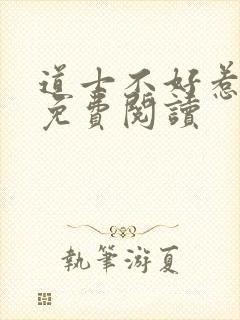 道士不好惹
免費閱讀
執筆游夏